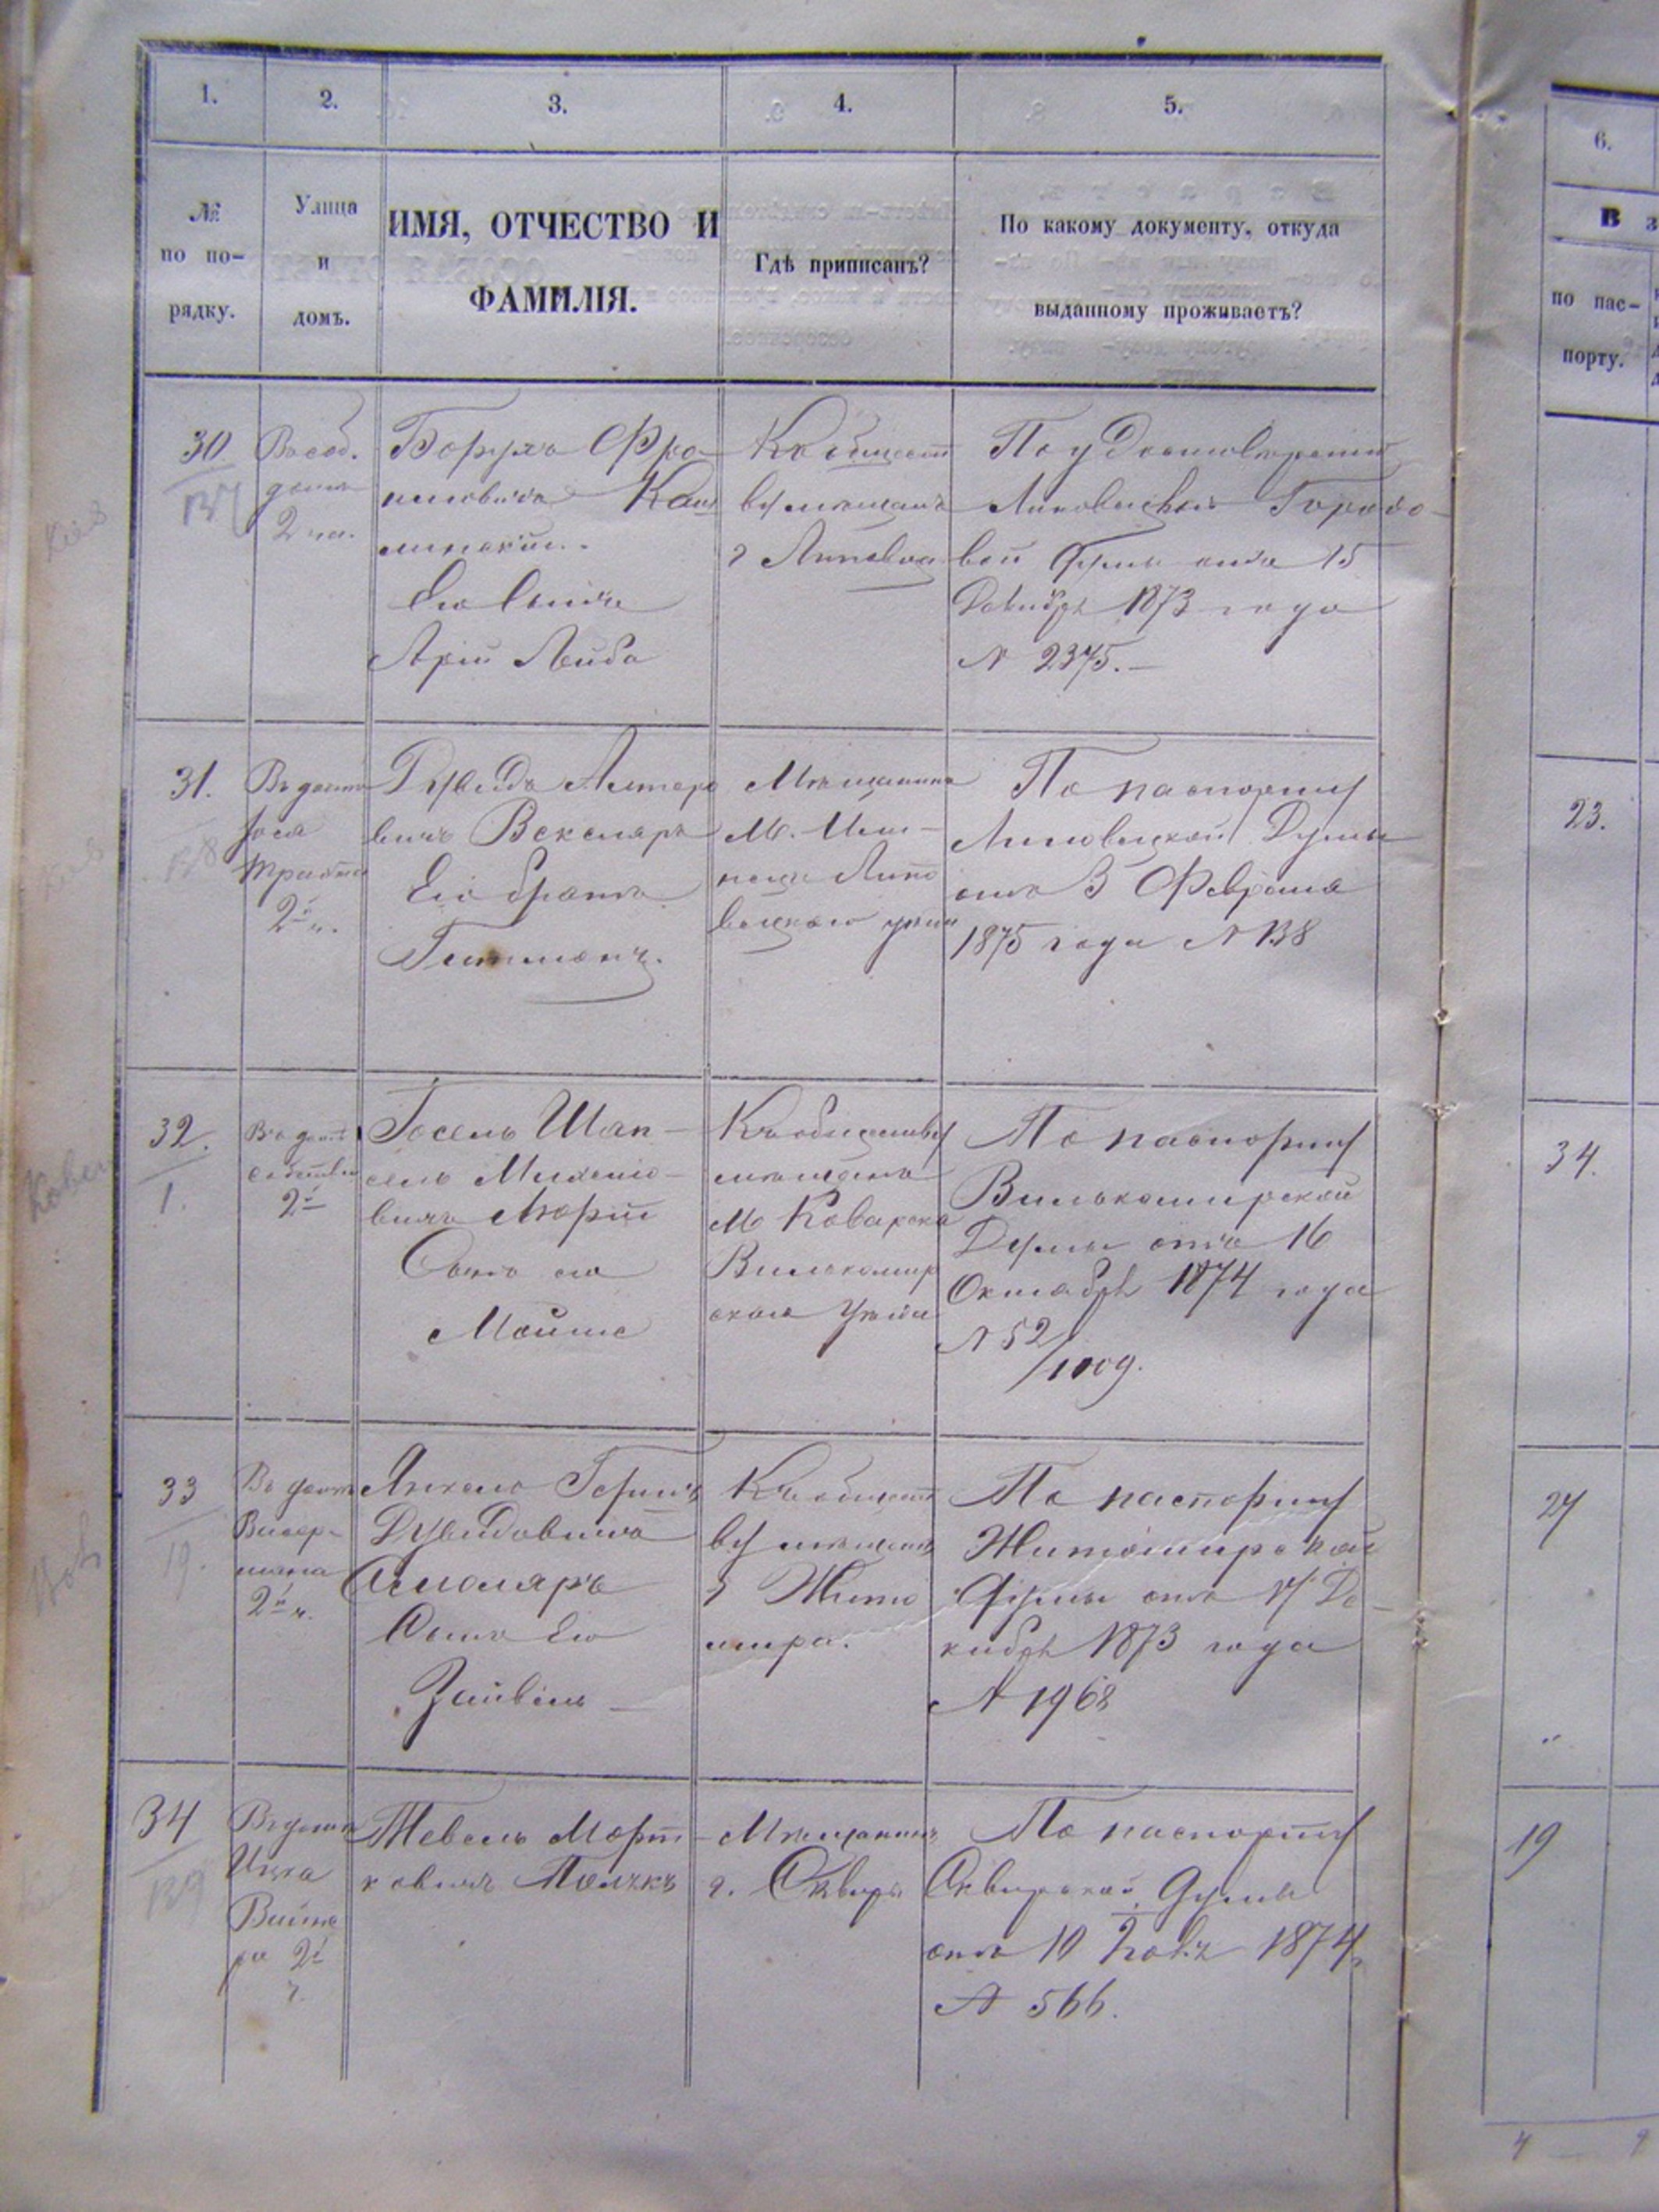 1.
2.
3.
4.
5.
6.
№
по по-
рядку.
Улица
и
домъ.
ИМЯ, ОТЧЕСТВО И
ФАМИЛІЯ.
Гдѣ приписанъ?
По какому документу, откуда
выданному проживаетъ?
В
по пас-
порту.
30
Въ соб.
домѣ
2 ча.
Борухъ
Его Сынъ
Арій Лейба
Къ общест
ву мѣщанъ
г Липовца
По удостовѣренію
Липовецкой Городо-
вой Думы отъ 15
Декабря 1873 года
N 2375.
31.
Въ домѣ
2й ч.
Дувидъ Альтеро
вичъ Векслеръ
Его братъ
Гитманъ.
Мѣщанинъ
М.
Липо
вецкаго уѣзда
По паспорту
Липовецкой Думы
отъ 3 Февраля
1875 года N 138
23.
32.
1.
Въ домѣ
собствен
2й
Іосель Шап-
сель Михело-
вичъ
Сынъ его
Мойше
Къ обществу
мѣщанъ
М Коварска
Вилькомир
скаго уѣзда
По паспорту
Вилькомирской
Думы отъ 16
Октября 1874 года
N 52/1009.
34.
33
19.
Въ домѣ
2й ч.
Янкель Гершъ
Дувидовичъ
Смоляръ
Сынъ Его
Зайвель
Къ общест
ву мѣщанъ
г Жито
мира.
По паспорту
Житомирской
Думы отъ 17 Де-
кабря 1873 года
N 1968
27
34
139
Въ домѣ
Ицка
Вайне
ра 2й
ч.
Тевель Морт-
ковичъ
Мѣщанинъ
г. Сквиры
По паспорту
Сквирской Думы
отъ 10 1874
N 566.
19